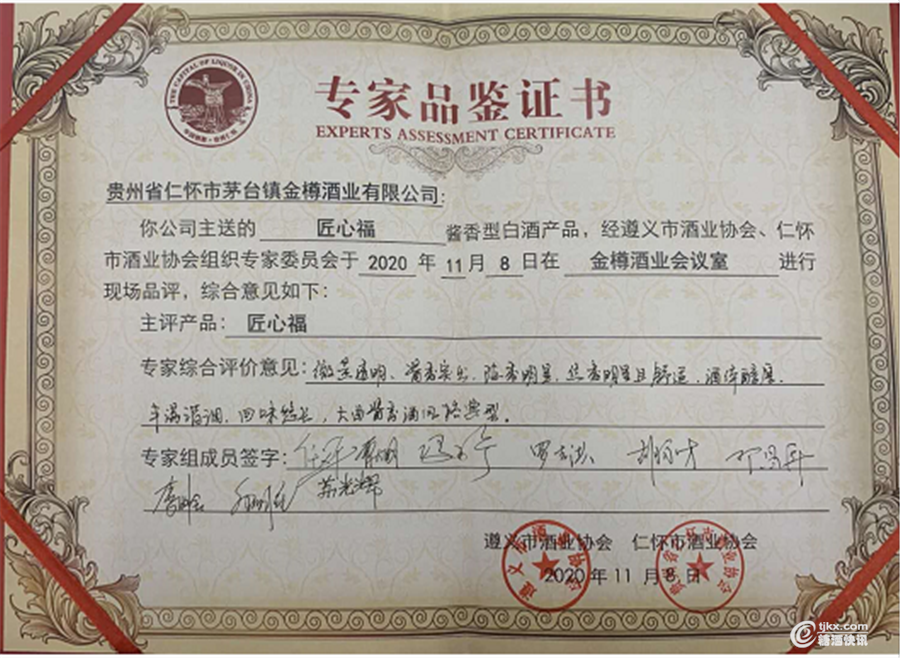 THE CAPITAL OF LIQUOR IN CHINA
专家品鉴证书
EXPERTS ASSESSMENT CERTIFICATE
贵州省仁怀市茅台镇金樽酒业有限公司:
你公司主送的 匠心福 酱香型白酒产品，经遵义市酒业协会、仁怀
市酒业协会组织专家委员会于 2020 年 11 月 8 日在 金樽酒业会议室 进行
现场品评，综合意见如下：
主评产品：匠心福
专家综合评价意见：微黄透明、酱香突出、陈香明显、焦香明显且舒适、酒体醇厚、
丰满谐调、回味悠长，大曲酱香酒风格典型。
专家组成员签字：
遵义市酒业协会 仁怀市酒业协会
2020年11月8日
遵义市酒业协会
tjkx.com
糖酒快讯